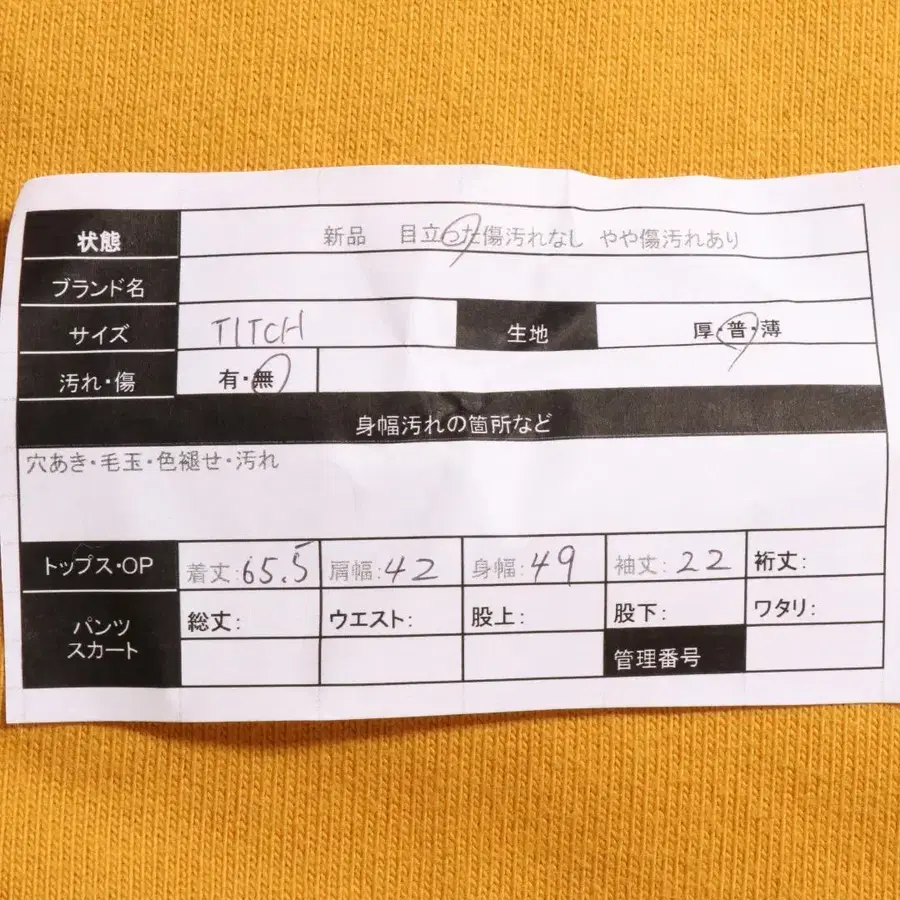 状態 新品 目立った傷汚れなし やや傷汚れあり
ブランド名
サイズ TITCH 生地 厚・普・薄
汚れ・傷 有・無
身幅汚れの箇所など
穴あき・毛玉・色褪せ・汚れ
トップス・OP 着丈:65.5 肩幅:42 身幅:49 袖丈:22 裄丈:
パンツ スカート 総丈: ウエスト: 股上: 股下: ワタリ:
管理番号